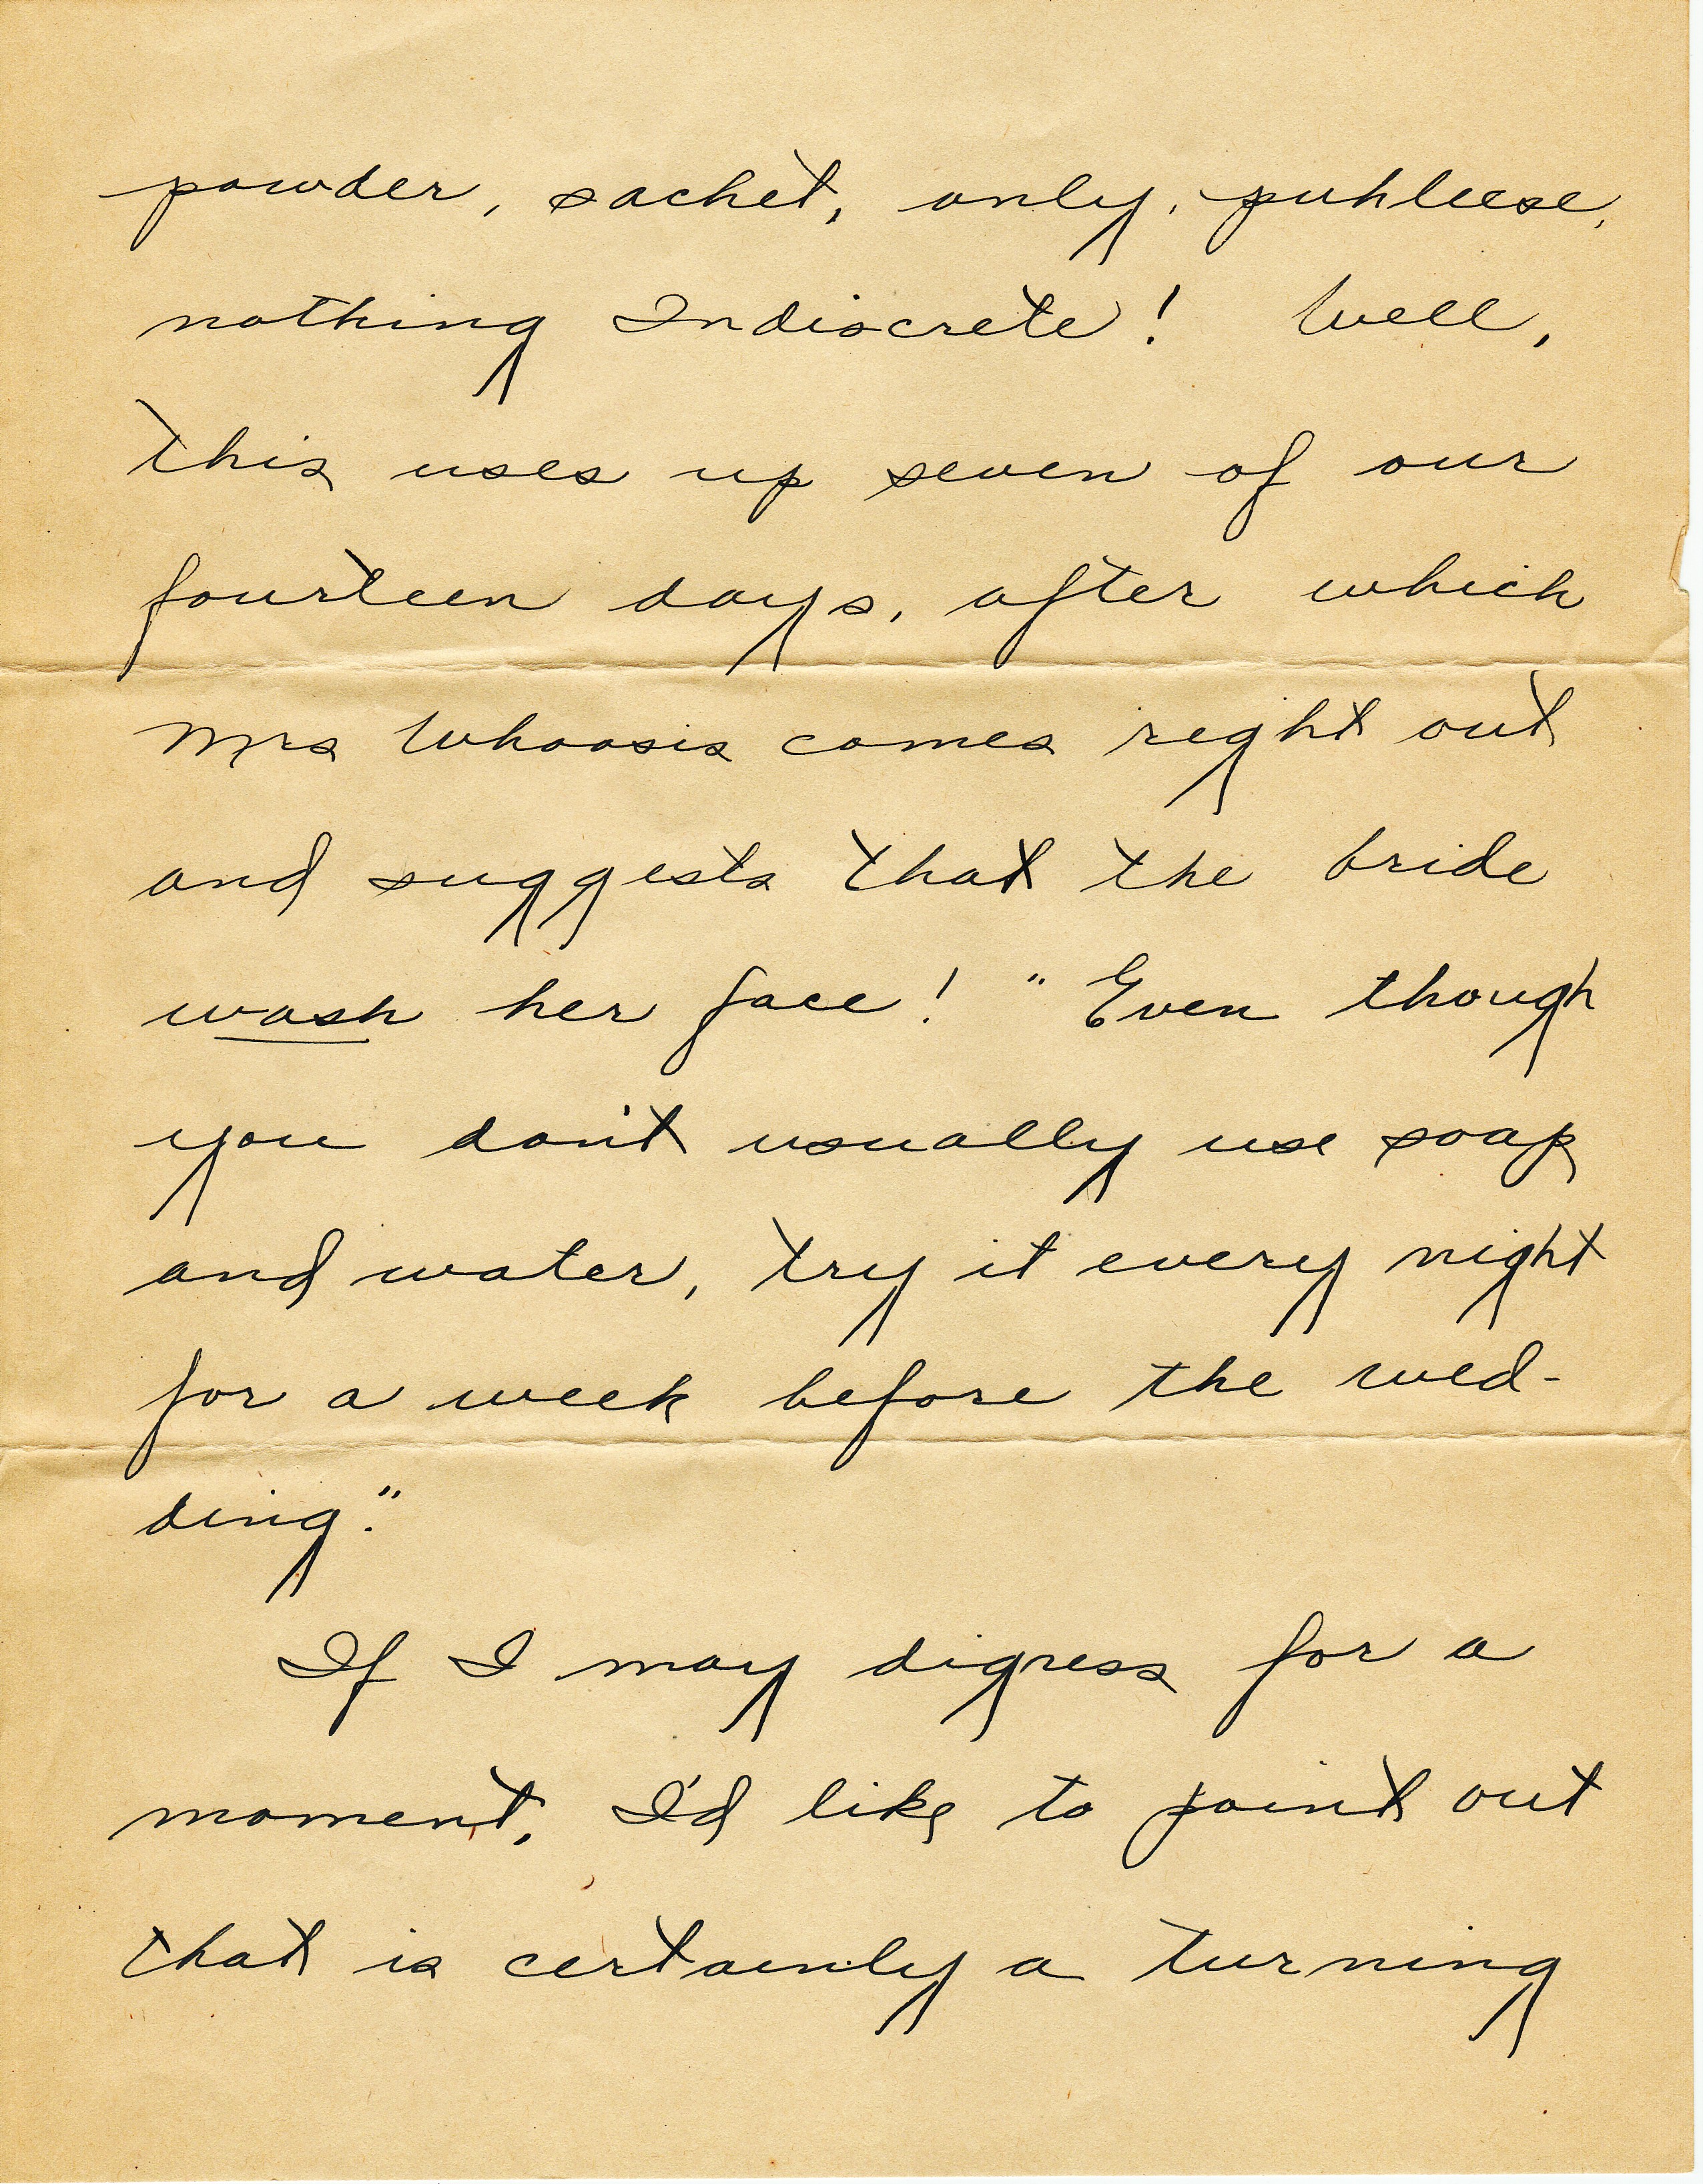 powder, sachet, only, puhleese,
nothing Indiscrete! Well,
this uses up seven of our
fourteen days, after which
Mrs Whoosis comes right out
and suggests that the bride
wash her face! "Even though
you don't usually use soap
and water, try it every night
for a week before the wed-
ding."
If I may digress for a
moment, I'd like to point out
that is certainly a turning